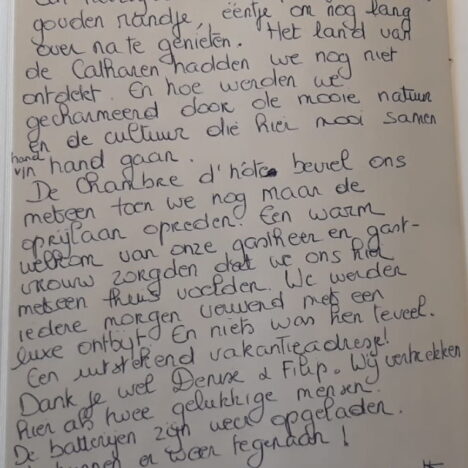 gouden randje, ééntje om nog lang
over na te genieten. Het land van
de Catharen hadden we nog niet
ontdekt. En hoe werden we
gecharmeerd door de mooie natuur
en de cultuur die hier mooi samen
hand
in hand gaan.
De Chambre d'hôtes beviel ons
meteen toen we nog maar de
oprijlaan opreden. Een warm
welkom van onze gastheer en gast-
vrouw zorgden dat we ons hier
meteen thuis voelden. We werden
iedere morgen verwend met een
luxe ontbijt. En niets was hen teveel.
Een uitstekend vakantieadresje!
Dank je wel Denise & Filip. Wij vertrekken
hier als twee gelukkige mensen.
De batterijen zijn weer opgeladen.
er weer tegenaan!